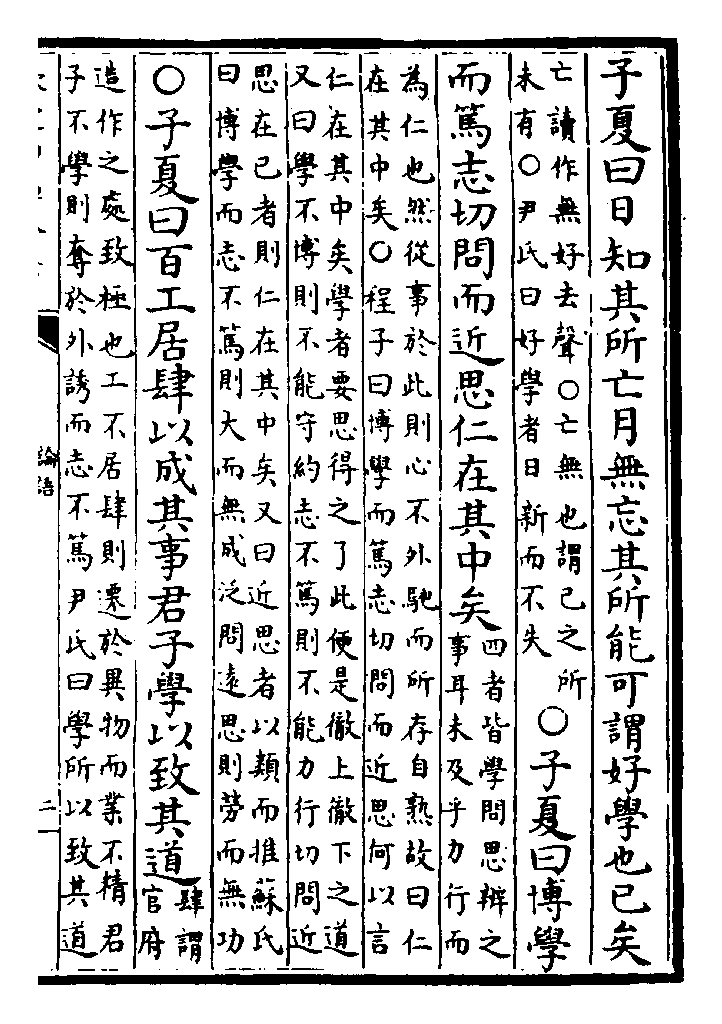 子夏曰日知其所亡月無忘其所能可謂好學也已矣
亡讀作無好去聲○亡無也謂己之所
未有○尹氏曰好學者日新而不失
○子夏曰博學
而篤志切問而近思仁在其中矣
四者皆學問思辨之
事耳未及乎力行而
為仁也然從事於此則心不外馳而所存自熟故曰仁
在其中矣○程子曰博學而篤志切問而近思何以言
仁在其中矣學者要思得之了此便是徹上徹下之道
又曰學不博則不能守約志不篤則不能力行切問近
思在己者則仁在其中矣又曰近思者以類而推蘇氏
曰博學而志不篤則大而無成泛問遠思則勞而無功
○子夏曰百工居肆以成其事君子學以致其道
肆謂
官府
造作之處致極也工不居肆則遷於異物而業不精君
子不學則奪於外誘而志不篤尹氏曰學所以致其道
論語
二